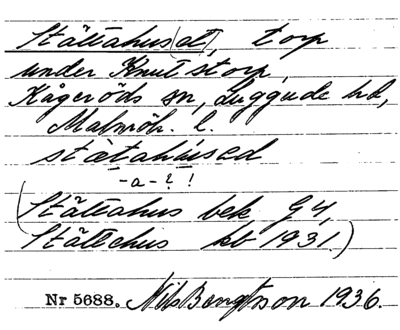 Stättahus(et), torp
under Knutstorp,
Kågeröds sn, Luggude hd,
Malmöh. l.
stätahúsed
-a-?!
(Stättahus bek G4,
Stättehus kb 1931.)
Nr 5688. Nils Bengtsson 1936.